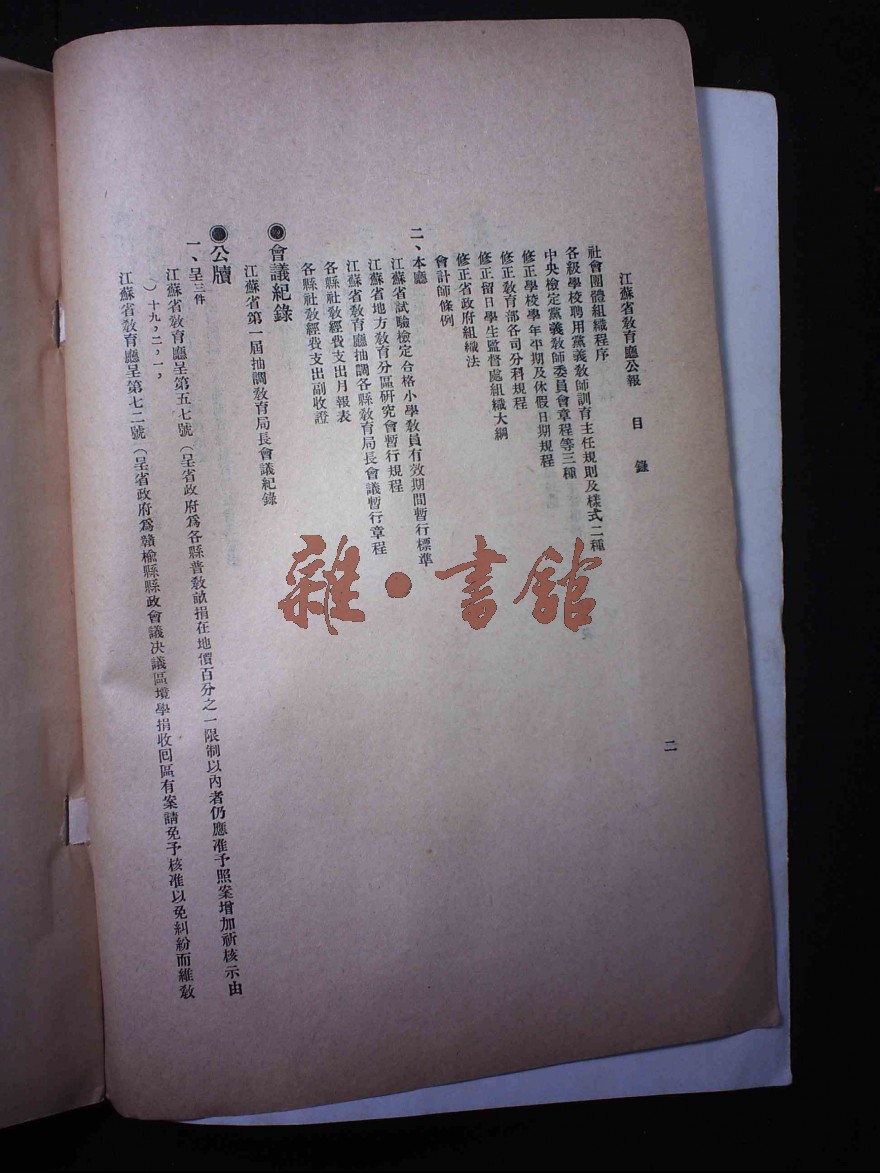 江蘇省教育廳公報　目錄
二
社會團體組織程序
各級學校聘用黨義教師訓育主任規則及樣式二種
中央檢定黨義教師委員會章程等三種
修正學校學年學期及休假日期規程
修正教育部各司分科規程
修正留日學生監督處組織大綱
修正省政府組織法
會計師條例
二、本廳
江蘇省試驗檢定合格小學教員有效期間暫行標準
江蘇省地方教育分區研究會暫行規程
江蘇省教育廳抽調各縣教育局長會議暫行章程
各縣社教經費支出月報表
各縣社教經費支出副收證
◉會議紀錄
江蘇省第一屆抽調教育局長會議紀錄
◉公牘
一、呈三件
江蘇省教育廳呈第五七號（呈省政府爲各縣普教畝捐在地價百分之一限制以內者仍應准予照案增加祈核示由
）十九，二，一，
江蘇省教育廳呈第七二號（呈省政府爲贛榆縣縣政會議決議區境學捐收囘區有案請免予核准以免糾紛而維教
雜•書館